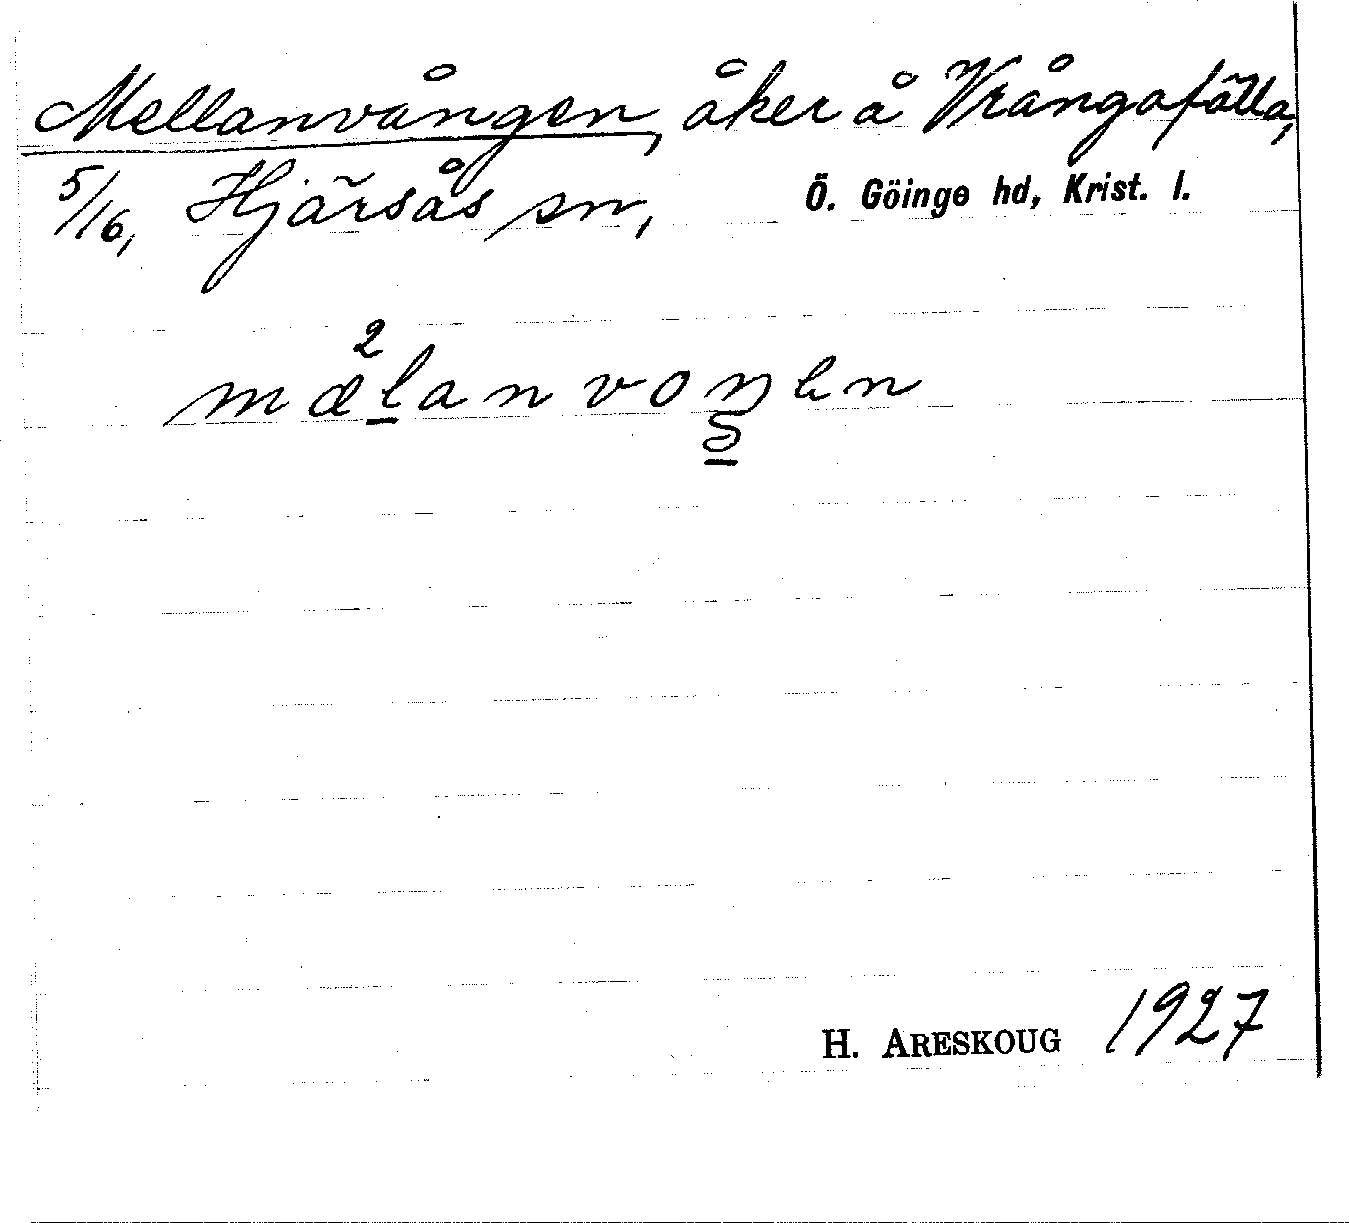 Mellanvången, åker å Vrångafälla,
5/16, Hjärsås sn, Ö. Göinge hd, Krist. l.
2
mælan voŋ en
H. ARESKOUG 1927